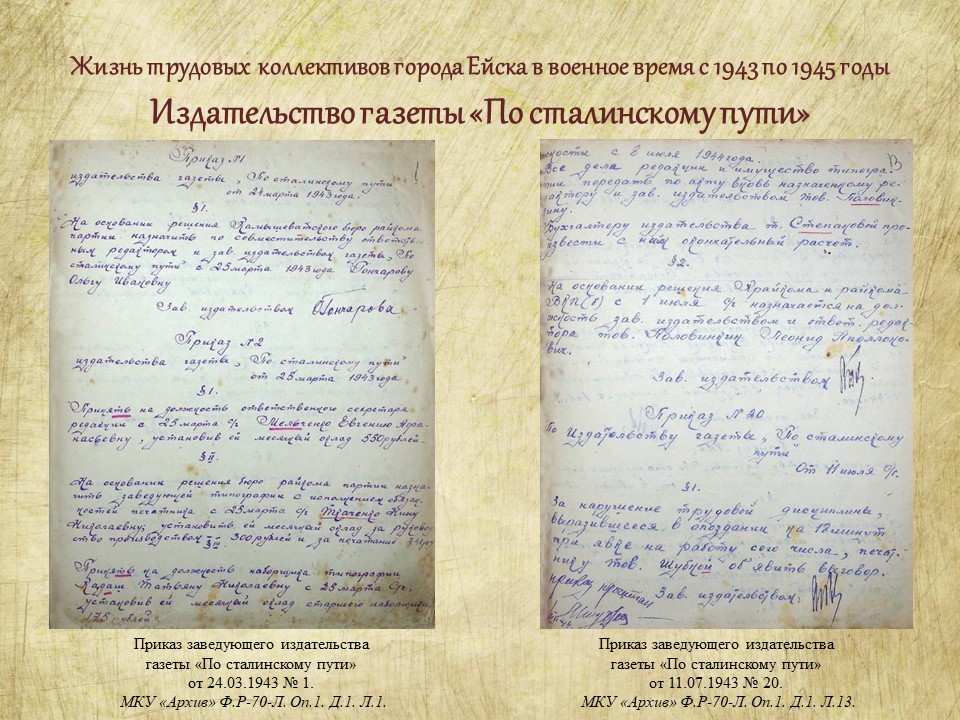 Жизнь трудовых коллективов города Ейска в военное время с 1943 по 1945 годы
Издательство газеты «По сталинскому пути»
Приказ №1
издательства газеты „По сталинскому пути"
от 24 марта 1943 года.
§1.
На основании решения Камышеватского бюро райкома
партии назначить по совместительству ответствен-
ным редактором и зав. издательством газеты „По
сталинскому пути" с 25 марта 1943 года Гончарову
Ольгу Ивановну
Зав. издательством Гончарова
Приказ №2
издательства газеты „По сталинскому пути"
от 25 марта 1943 года
§1.
Принять на должность ответственного секретаря
редакции с 25 марта с/г Мельченко Евгению Афа-
насьевну, установив ей месячный оклад 550 рублей.
§II.
На основании решения бюро райкома партии назна-
чить заведующей типографии с исполнением обязан-
ностей печатника с 25 марта с/г Ткаченко Нину
Николаевну, установить ей месячный оклад за руковод-
ство производством 300 рублей и за печатание
§III
Принять на должность наборщика типографии
Кадаш Татьяну Николаевну с 25 марта с/г.
установив ей месячный оклад старшего наборщика
175 рублей
13
ности с 2 июля 1944 года.
Все дела редакции и имущество типогра-
фии передать по акту вновь назначенному ре-
дактору и зав. издательством тов. Половин-
кину.
Бухгалтеру издательства т. Степановой про-
извести с ним окончательный расчет.
§2.
На основании решения Крайкома и райкома
ВКП(б) с 1 июля с/г назначается на дол-
жность зав. издательством и ответ. редак-
тора тов. Половинкин Леонид Аполлоно-
вич.
Зав. издательством
Приказ №20
По Издательству газеты „По сталинскому
пути"
От 11 июля с/г.
§1.
За нарушение трудовой дисциплины,
выразившееся в опоздании на 12 минут
при явке на работу сего числа, печат-
нику тов. Шубной объявить выговор.
Зав. издательством
приказ прочитан
Приказ заведующего издательства
газеты «По сталинскому пути»
от 24.03.1943 № 1.
МКУ «Архив» Ф.Р-70-Л. Оп.1. Д.1. Л.1.
Приказ заведующего издательства
газеты «По сталинскому пути»
от 11.07.1943 № 20.
МКУ «Архив» Ф.Р-70-Л. Оп.1. Д.1. Л.13.